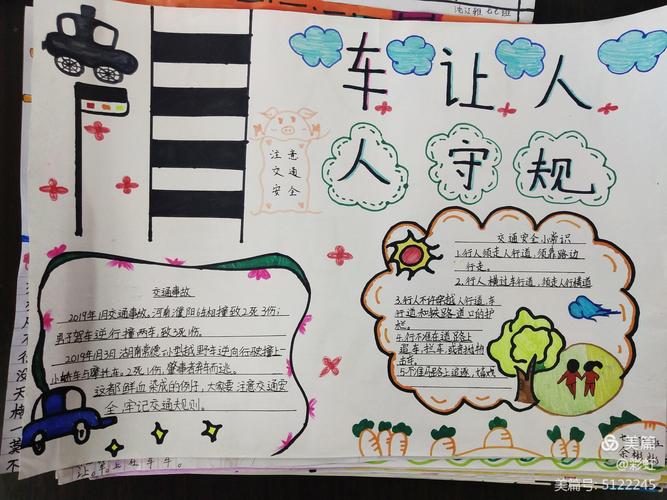 车让人
人守规
注意
交通
安全
交通安全小常识
1.行人须走人行道,须靠路边
行走。
2.行人横过车行道,须走人行横道
3.行人不许穿越人行道,车
行道和铁路道口的护
栏。
4.行不准在道路上
追车,拦车或者抛物
击车。
5.不准马路上追逐、嬉戏
交通事故
2019年1月交通事故,河南濮阳6车相撞致2死3伤;
男子驾车逆行撞两车,致3死伤。
2019年8月3日湖南常德一小型越野车逆向行驶撞上
小轿车与摩托车,2死1伤,肇事者弃车而逃。
这都鲜血染成的例片,大家要注意交通安
全,牢记交通规则。
美篇
@彩虹
美篇号:5122245